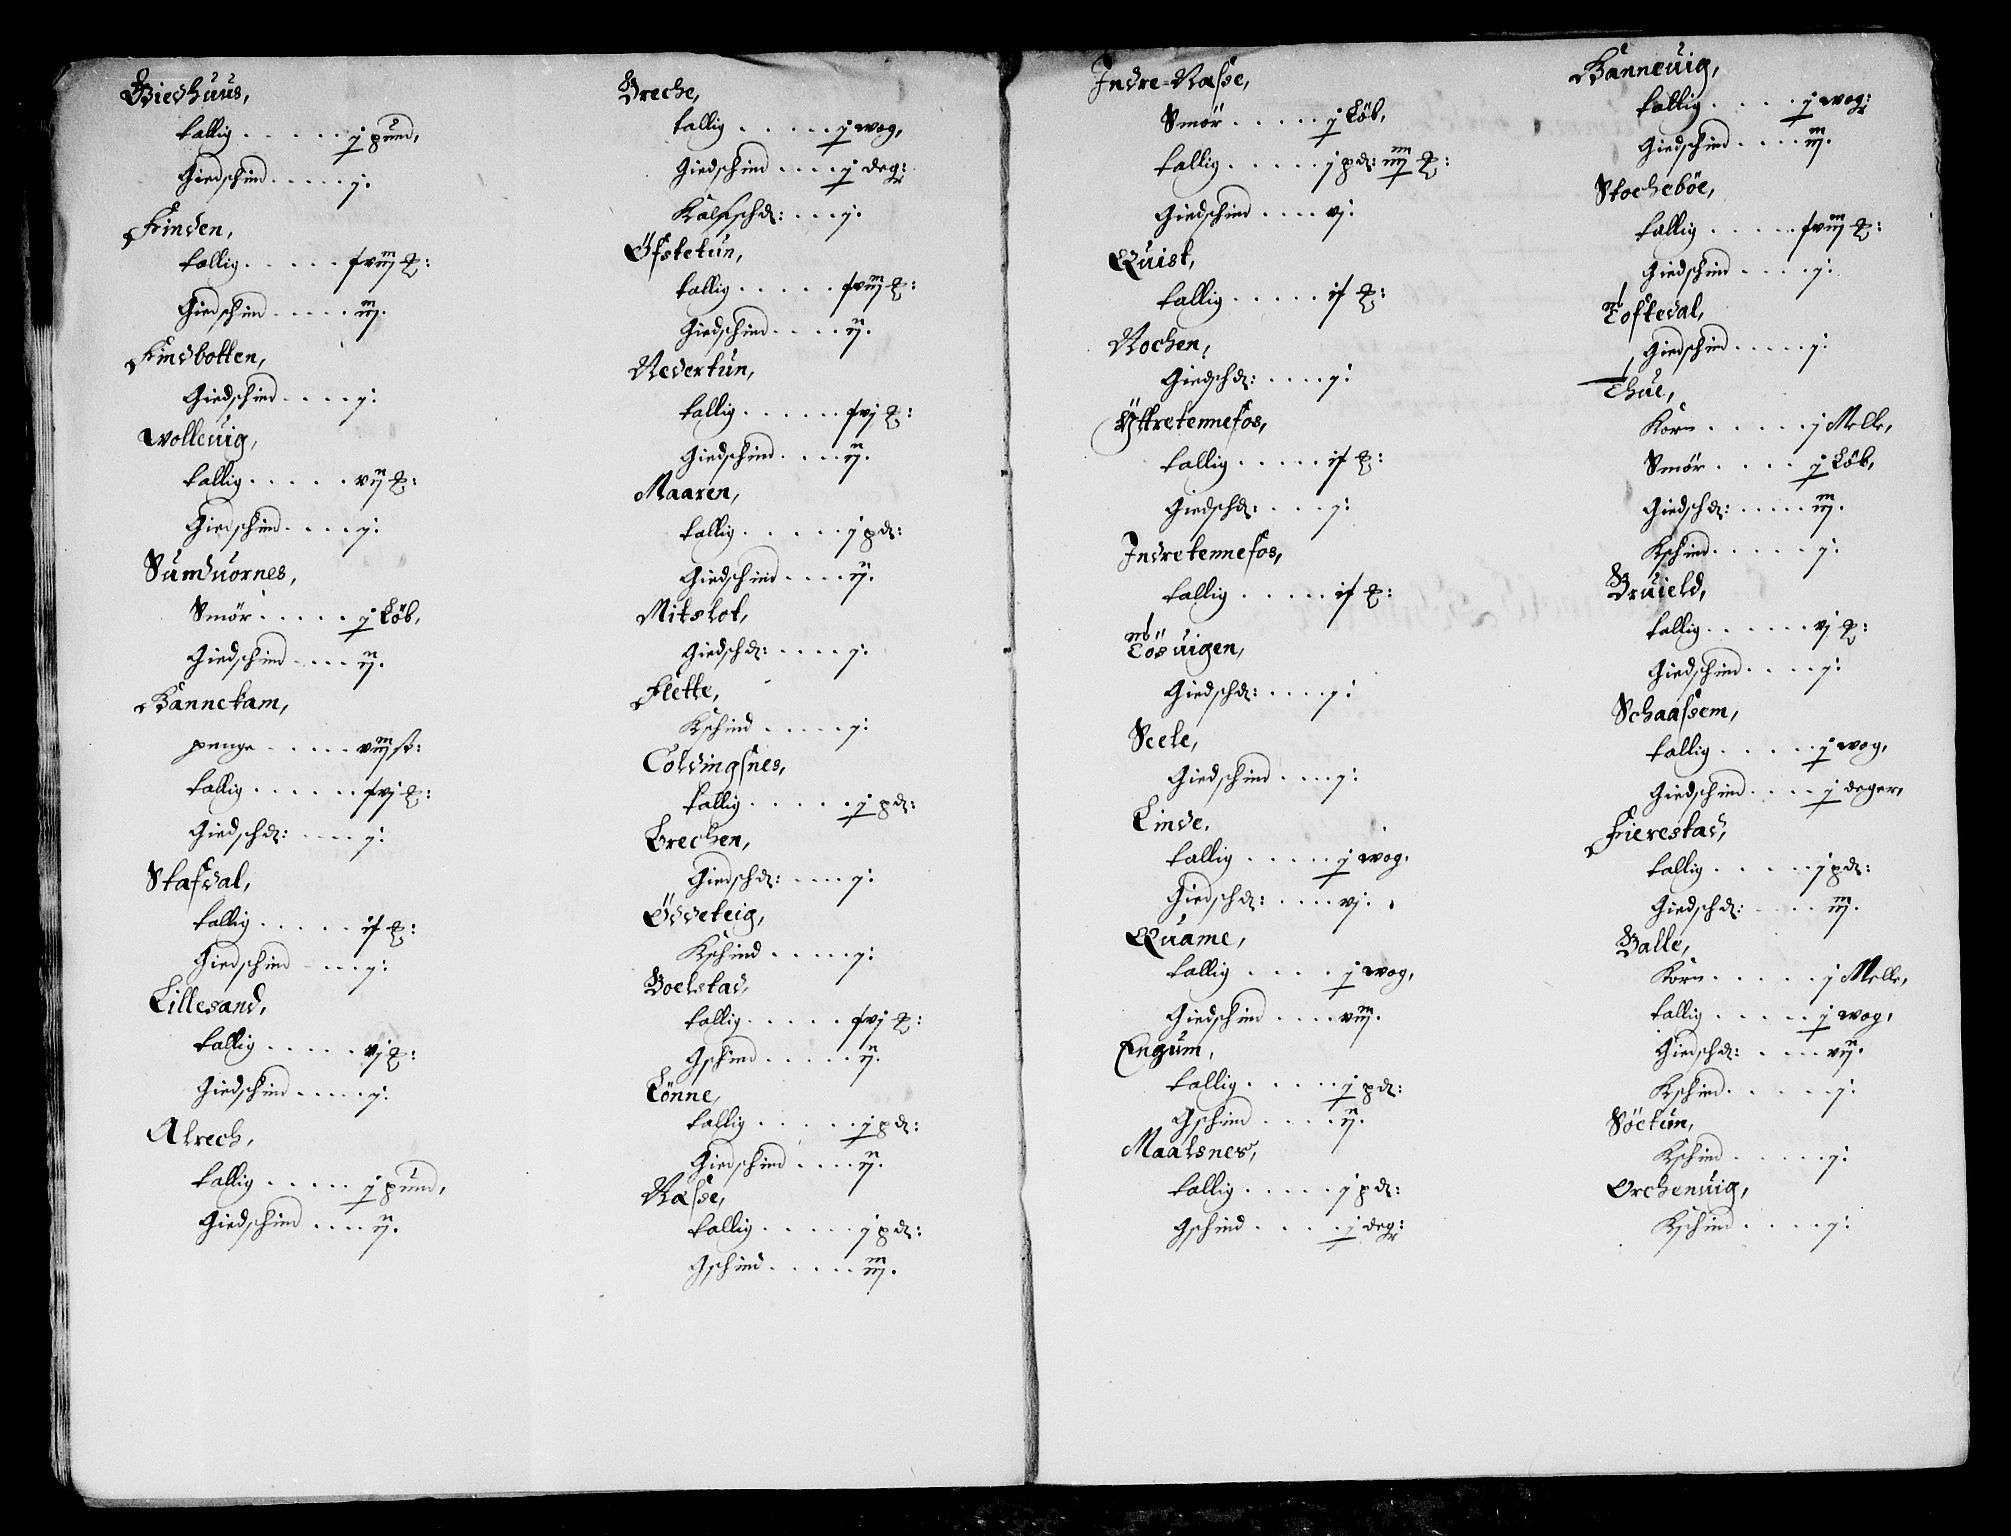 Giedhuus,
tallig ..... j pund,
Giedschind ..... j.
Kinden,
tallig ..... fviij ℔:
Giedschind ..... iij.
Kindbotten,
Giedschind .... j:
Wolleuig,
tallig ..... vij ℔:
Giedschind .... j:
Sumduornes,
Smör ..... j Löb,
Giedschind .... ij.
Bannekam,
penge ..... viij st:
tallig ...... fvj ℔:
Giedschd: .... j:
Stafdal,
tallig ..... if ℔:
Giedschind .... j:
Lillesand,
tallig ..... vj ℔:
Giedschind ..... j:
Alrech,
tallig ..... j pund,
Giedschind .... ij.
Breche,
tallig ..... j wog,
Giedschind .... j degr:
Kalfschd: ... j.
Öfstetun,
tallig ..... fviij ℔:
Giedschind .... ij.
Nedertun,
tallig ...... fvj ℔:
Giedschind .... ij.
Maaren,
tallig ...... j pd:
Giedschind .... ij.
Mitslot,
Giedschd: .... j.
Flette,
Kschind ..... j:
Coldingsnes,
tallig ..... j pd:
Brechen,
Giedschd: .... j:
Öddeteig,
Kschind ..... j:
Boelstad,
tallig ..... fvj ℔:
Gschind ..... ij.
Lönne,
tallig ..... j pd:
Giedschind .... ij.
Nasse,
tallig ..... j pd:
Gschind ..... iij.
Indre=Nasse,
Smör ..... j Löb,
tallig ..... j pd: iiij ℔:
Giedschind .... vj:
Quist,
tallig ..... if ℔:
Nochen,
Giedschd: .... j:
Yttretennefos,
tallig ..... if ℔:
Giedschd: ... j:
Indretennefos,
tallig ..... if ℔:
nb
Tösuigen,
Giedschd: .... j:
Seele,
Giedschind .... j:
Linde,
tallig ..... j wog,
Giedschd: .... vj.
Quame,
tallig .... j wog,
Giedschind .... viij.
Engum,
tallig ..... j pd:
Gschind .... ij.
Maalsnes,
tallig ..... j pd:
Gschind .... j degr:
Banneuig,
tallig .... j wogr:
Giedschind .... iij.
Stocheböe,
tallig ..... fviij ℔:
Giedschind .... j:
nb
Toftedal,
Giedschind ..... j:
Thue,
Korn ..... j Melle,
Smör .... j Löb,
Giedschd: ..... iij.
Kschind ..... j:
Bruield,
tallig ...... vj ℔:
Giedschind .... j:
Schaassem,
tallig ..... j wog,
Giedschind .... j deger,
Fierestad,
tallig ..... j pd:
Giedschd: .... iij.
Balle,
Korn ..... j Melle,
tallig ..... j wog,
Giedschd: .... vij.
Kschind ..... j:
Söetun,
Kschind ..... j:
Orchenuig,
Kschind .... j: